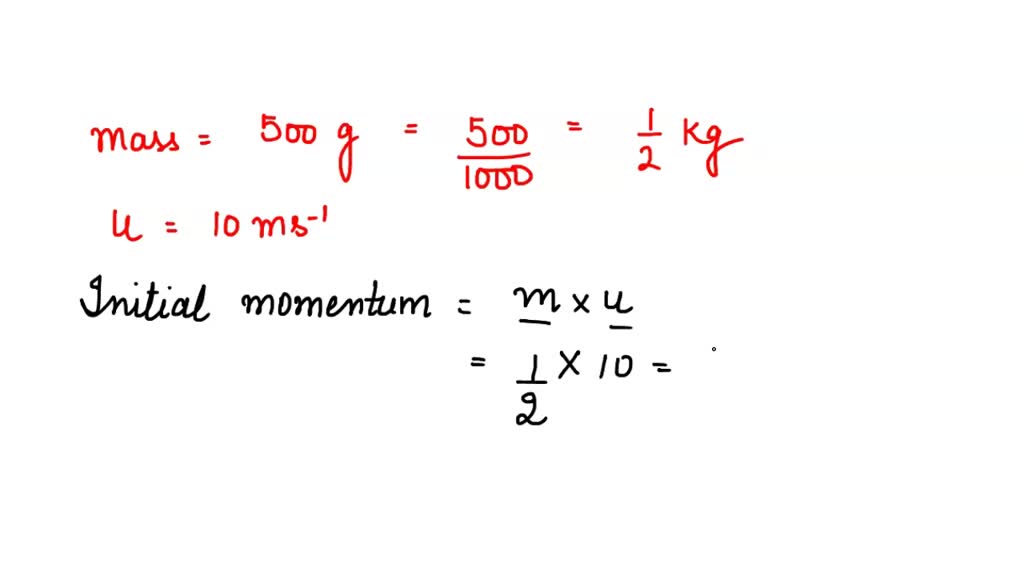 mass = 500 g = 500/1000 = 1/2 kg
u = 10 ms⁻¹
Initial momentum = m × u
= 1/2 × 10 =